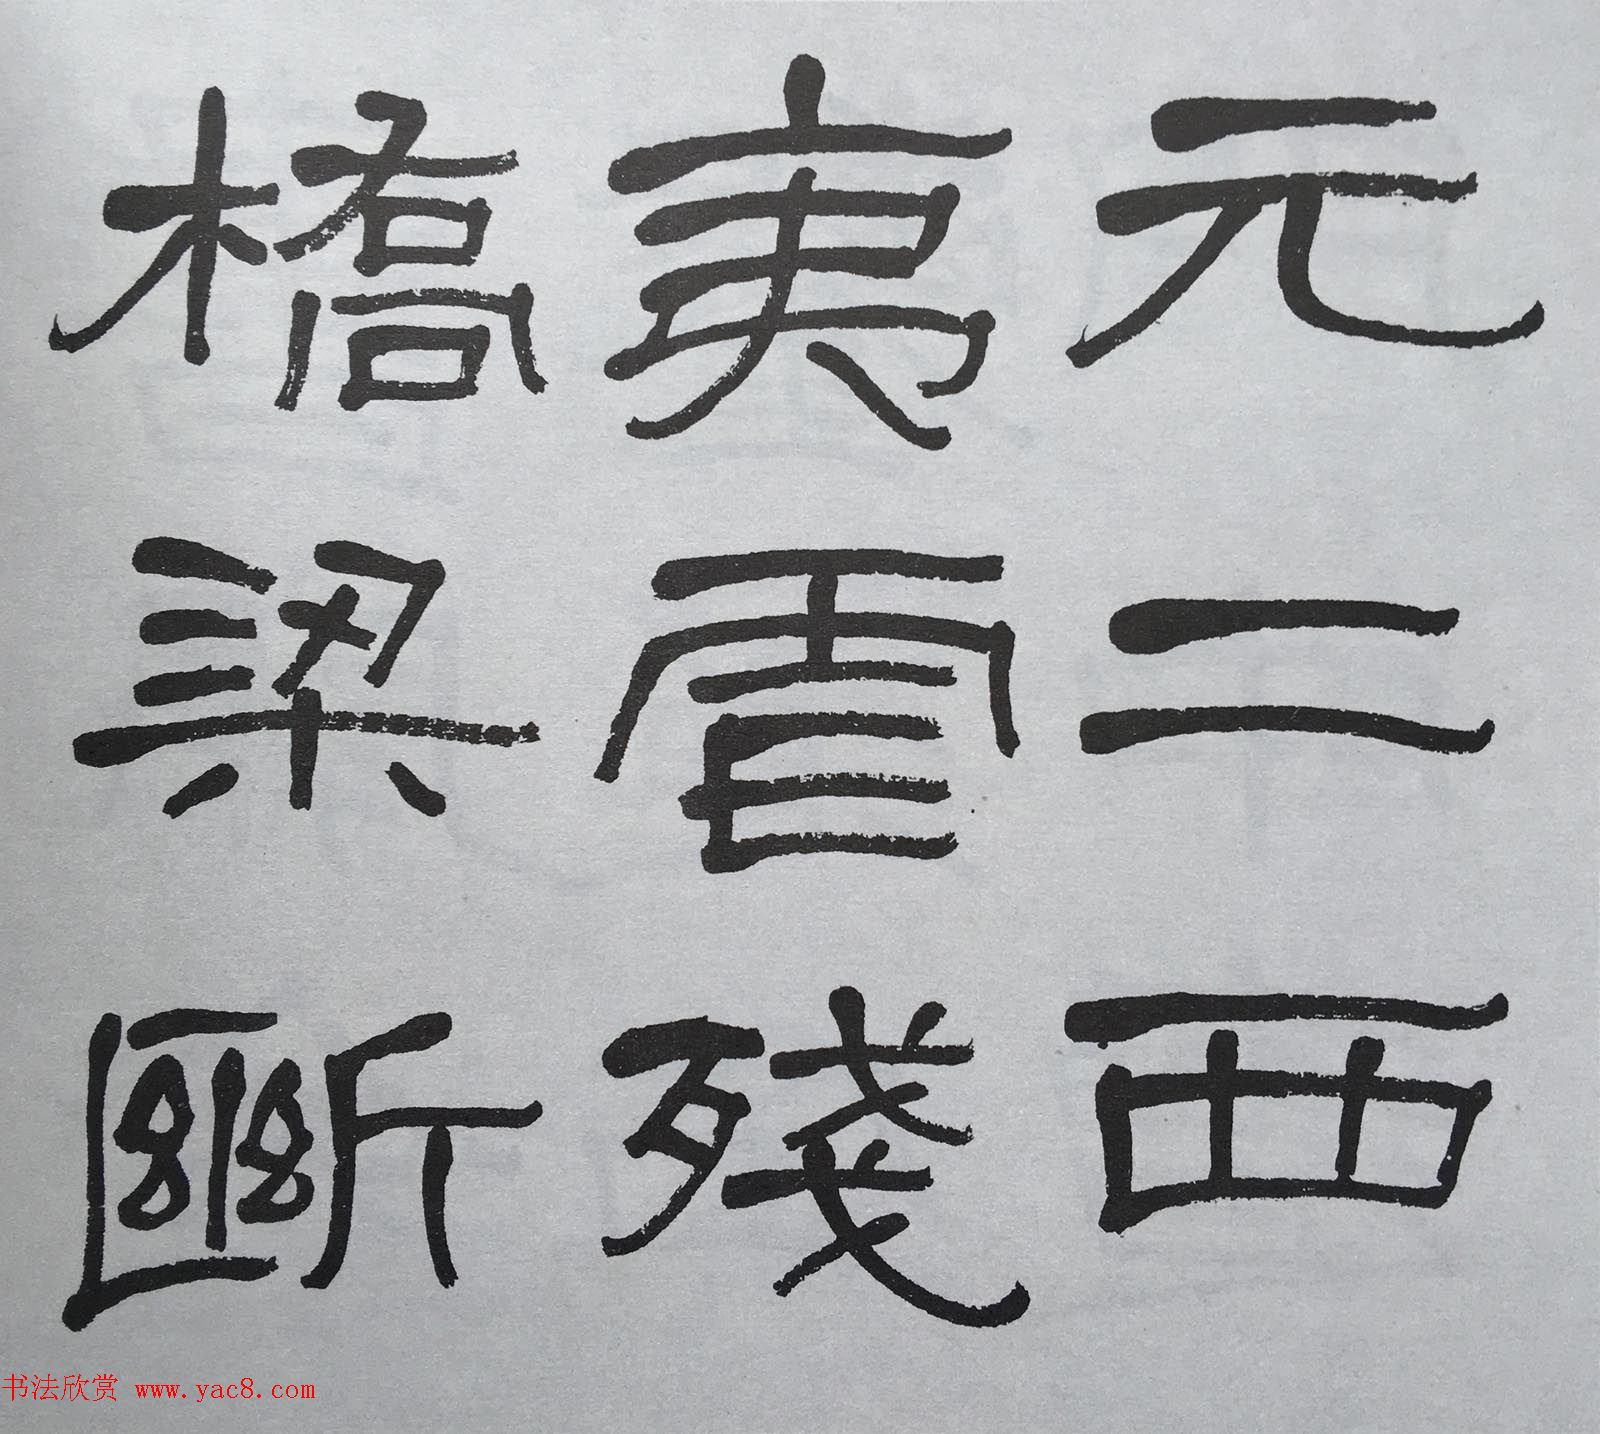 元二西
夷虐殘
橋梁斷
书法欣赏 www.yac8.com